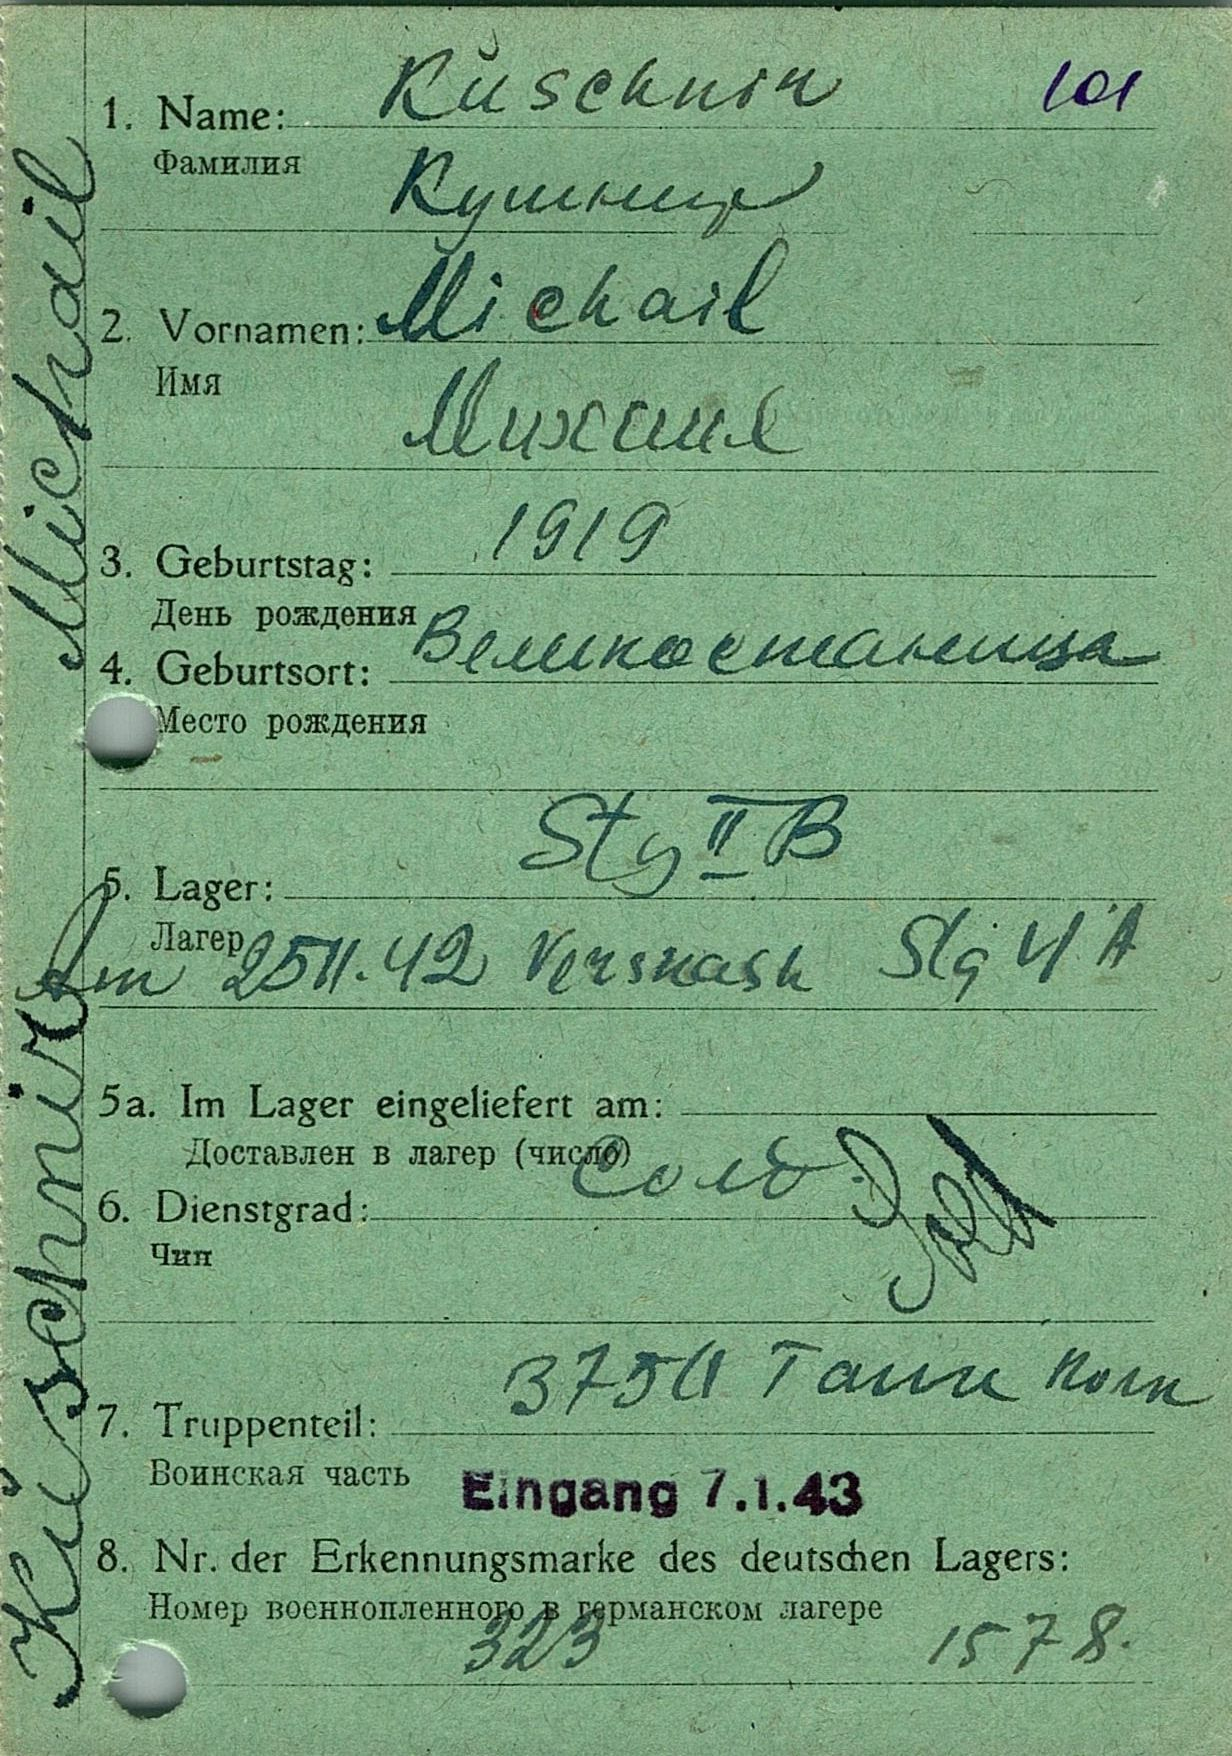 Kuschnir Michail
1. Name: Kuschnir 101
Фамилия
Кушнир
2. Vornamen: Michail
Имя
Михаил
3. Geburtstag: 1919
День рождения
4. Geburtsort: Великостаница
Место рождения
5. Lager: Stg II B
Лагер
25 11. 42 Stg A
5a. Im Lager eingeliefert am:
Доставлен в лагер (число)
6. Dienstgrad: Солд. Sold
Чин
7. Truppenteil: Танк
Воинская часть
Eingang 7.1.43
8. Nr. der Erkennungsmarke des deutschen Lagers:
Номер военнопленного в германском лагере
323 1578.